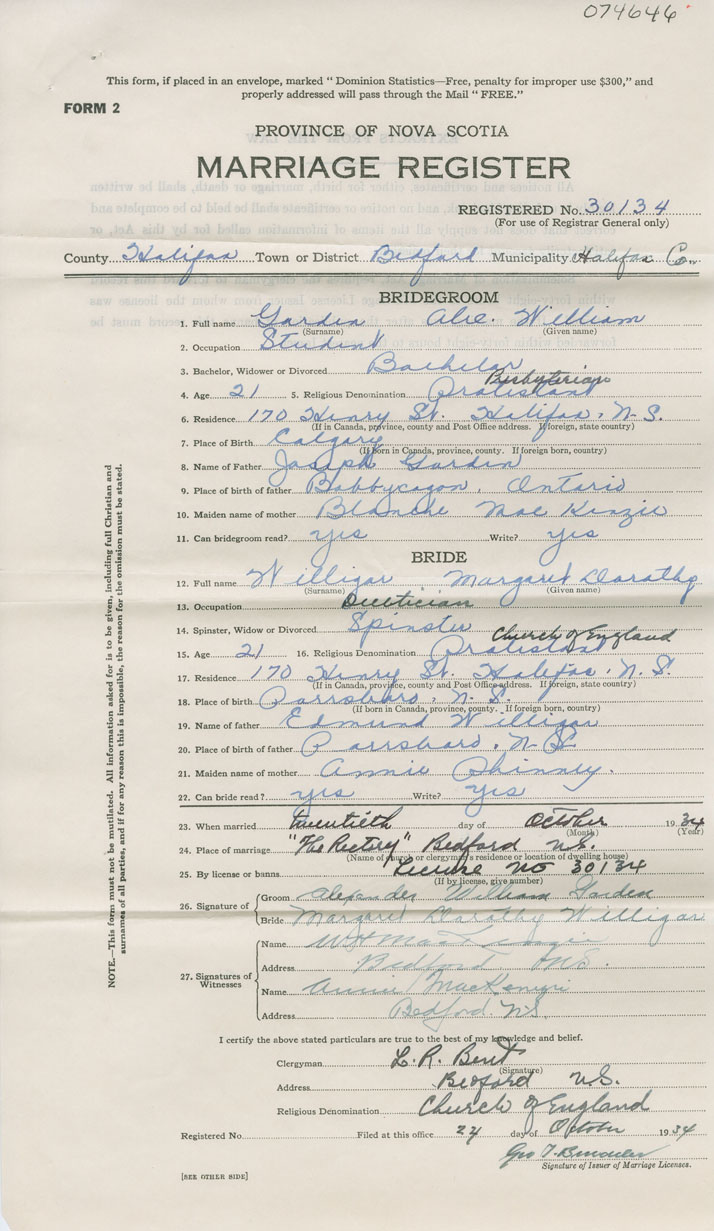 074646
This form, if placed in an envelope, marked “ Dominion Statistics—Free, penalty for improper use $300,” and
properly addressed will pass through the Mail “ FREE.”
FORM 2
PROVINCE OF NOVA SCOTIA
MARRIAGE REGISTER
REGISTERED No. 30134
(For use of Registrar General only)
County Halifax Town or District Bedford Municipality Halifax Co.
BRIDEGROOM
1. Full name Garden Alex. William
(Surname) (Given name)
2. Occupation Student
3. Bachelor, Widower or Divorced Bachelor
Presbyterian
4. Age 21 5. Religious Denomination Protestant
6. Residence 170 Henry St. Halifax, N.S.
(If in Canada, province, county and Post Office address. If foreign, state country)
7. Place of Birth Calgary
(If born in Canada, province, county. If foreign born, country)
8. Name of Father Joseph Garden
9. Place of birth of father Bobbycagon, Ontario
10. Maiden name of mother Blanche Mac Kinzie
11. Can bridegroom read? yes Write? yes
BRIDE
12. Full name Willigar Margaret Dorathy
(Surname) (Given name)
13. Occupation Dietitian
14. Spinster, Widow or Divorced Spinster
Church of England
15. Age 21 16. Religious Denomination Protestant
17. Residence 170 Henry St. Halifax, N.S.
(If in Canada, province, county and Post Office address. If foreign, state country)
18. Place of birth Parrsboro, N.S.
(If born in Canada, province, county. If foreign born, country)
19. Name of father Edmund Willigar
20. Place of birth of father Parrsboro, N.S.
21. Maiden name of mother Annie Phinney.
22. Can bride read? yes Write? yes
23. When married twentieth day of October 1934
(Month) (Year)
24. Place of marriage "The Rectory" Bedford N.S.
(Name of church or clergyman's residence or location of dwelling house)
25. By license or banns License No 30134
(If by license, give number)
26. Signature of
Groom Alexander William Garden
Bride Margaret Dorathy Willigar
27. Signatures of Witnesses
Name
Address Bedford N.S.
Name Annie MacKenzie
Address Bedford N.S.
I certify the above stated particulars are true to the best of my knowledge and belief.
Clergyman L. R. Bent
(Signature)
Address Bedford N.S.
Religious Denomination Church of England
Registered No. Filed at this office 24 day of October 1934
Geo T.
Signature of Issuer of Marriage Licenses.
[SEE OTHER SIDE]
NOTE.—This form must not be mutilated. All information asked for is to be given, including full Christian and
surnames of all parties, and if for any reason this is impossible, the reason for the omission must be stated.